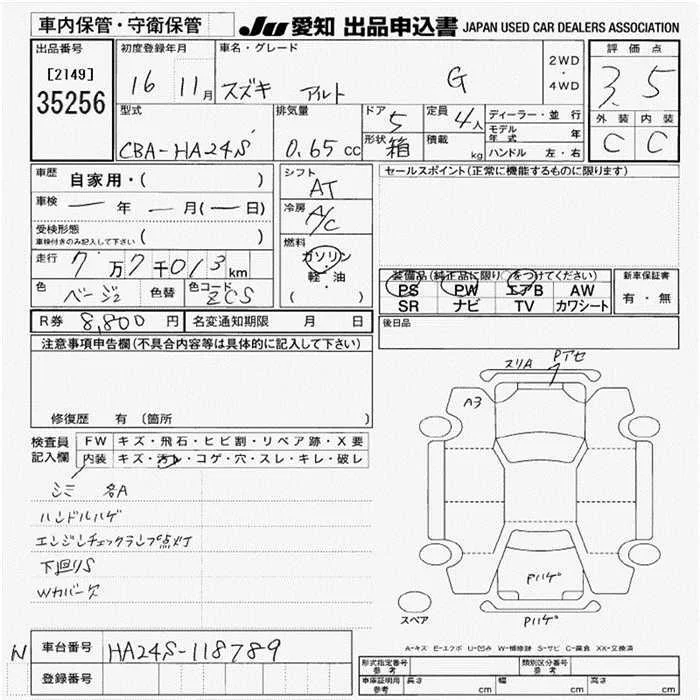 車内保管・守衛保管
JU 愛知 出品申込書 JAPAN USED CAR DEALERS ASSOCIATION
出品番号
[2149]
35256
初度登録年月
16 11月
車名・グレード
スズキ アルト G
2WD
・
4WD
評価点
3.5
外装 内装
C C
型式
CBA-HA24S
排気量
0.65cc
ドア 5
形状 箱
定員 4人
積載 kg
ディーラー・並行
モデル年式 年
ハンドル 左・右
車歴 自家用・( )
車検 ー年 ー月(ー日)
受検形態
車検付きのみ記入して下さい ( )
走行 7万7千013km
色 ベージ2 色替 色コード ZCS
シフト
AT
冷房
A/C
燃料
ガソリン
・
軽・油
( )
セールスポイント(正常に機能するものに限ります)
装備品(純正品に限り○をつけてください)
PS PW エアB AW
SR ナビ TV カワシート
新車保証書
有・無
R券 8,800円 名変通知期限 月 日
後日品
注意事項申告欄(不具合内容等は具体的に記入して下さい)
修復歴 有 〔箇所 〕
検査員記入欄
FW キズ・飛石・ヒビ割・リペア跡・X要
内装 キズ・汚レ・コゲ・穴・スレ・キレ・破レ
シミ 各A
ハンドルハゲ
エンジンチェックランプ点灯
下回りS
Wカバー欠
スリA Pアセ
ヘ3
Pハゲ
Pハゲ
スペア
A-キズ E-エクボ U-凹み W-補修跡 S-サビ C-腐食 XX-交換済
N
車台番号 HA24S-118789
登録番号
形式指定番号
参考
類別区分番号
参考
車庫証明用
参考
長さ cm 幅 cm 高さ cm